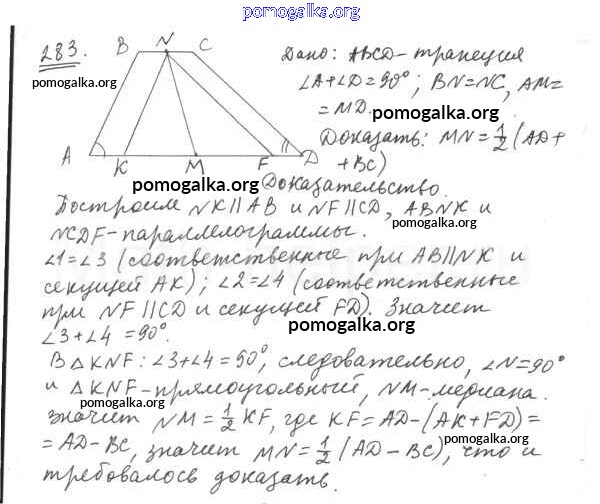 pomogalka.org
283.
B N C
A K M F D
pomogalka.org
Дано: ABCD-трапеция
∠A+∠D=90°; BN=NC, AM=
=MD.
pomogalka.org
Доказать: MN=½(AD+
+BC)
pomogalka.org
Доказательство.
Построим NK||AB и NF||CD, ABNK и
NCDF-параллелограммы.
∠1=∠3 (соответственные при AB||NK и
секущей AK); ∠2=∠4 (соответственные
при NF||CD и секущей FD). Значит
∠3+∠4=90°.
pomogalka.org
В △KNF: ∠3+∠4=90°, следовательно, ∠N=90°
pomogalka.org
и △KNF-прямоугольный, NM-медиана.
pomogalka.org
Значит NM=½KF, где KF=AD-(AK+FD)=
=AD-BC, значит MN=½(AD-BC), что и
pomogalka.org
требовалось доказать.
pomogalka.org